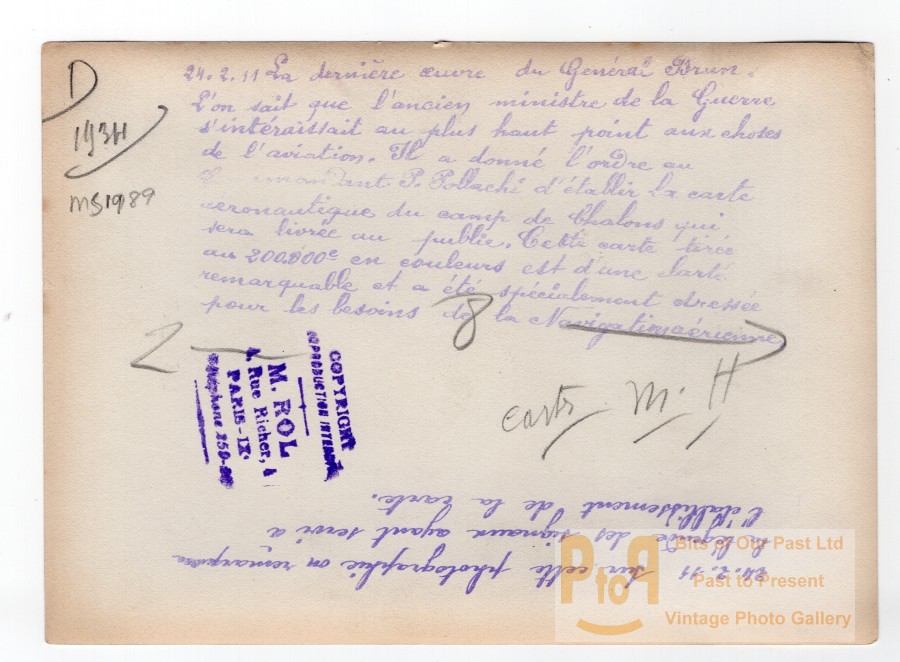 D
1934
MS1989
24.2.11 La dernière œuvre du Général Brun.
L'on sait que l'ancien ministre de la Guerre
s'intéraissait au plus haut point aux choses
de l'aviation. Il a donné l'ordre au
P. Pollachi d'établir la carte
aéronautique du camp de Chalons qui
sera livrée au public. Cette carte tirée
au 200.000e en couleurs est d'une clarté
remarquable et a été spécialement dressée
pour les besoins de la Navigation aérienne
2 8
COPYRIGHT
REPRODUCTION INTERDITE
M. ROL
4, Rue Richer, 4
PARIS-IXe
Téléphone 250-
M. H
24.2.11 Sur cette photographie on remarquera
la légende des signaux ayant servi a
l'établissement de la carte.
PToP
Bits of Our Past Ltd
Past to Present
Vintage Photo Gallery